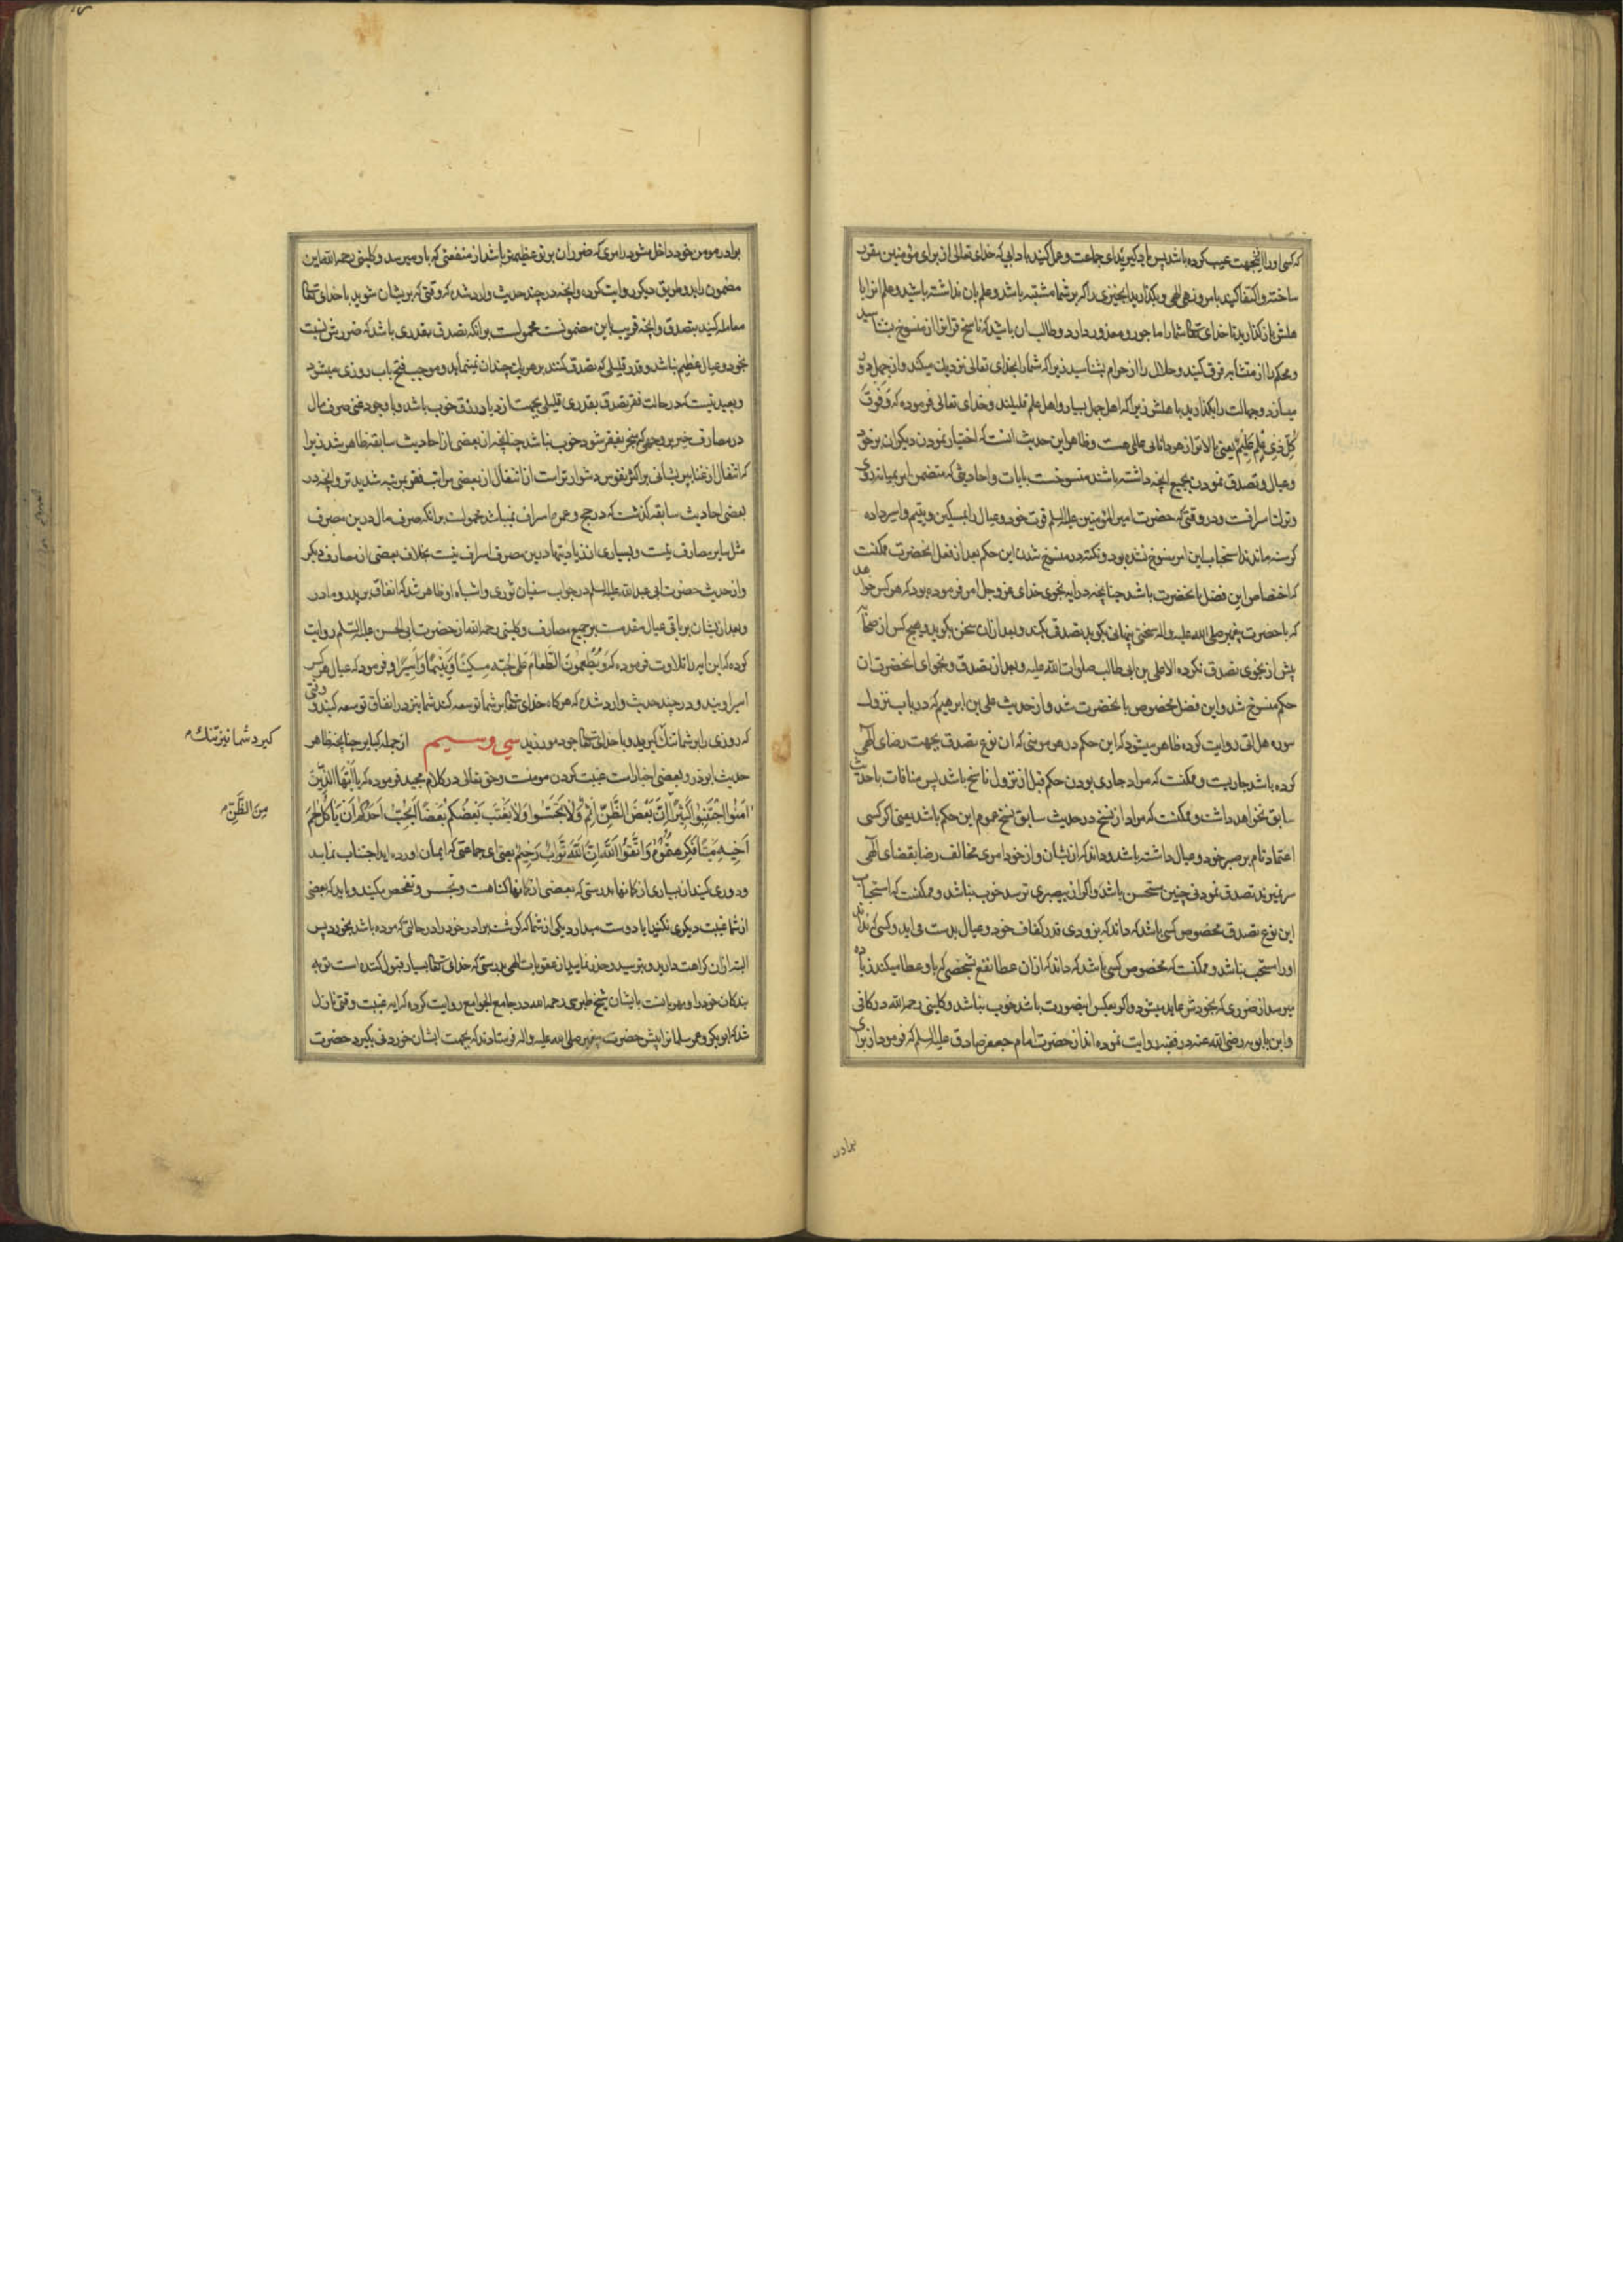 که کسی او را اینجهت عیب کرده باشد پس یاد کیرید ای جماعت و عمل کنید بادابی که خدای تعالی از برای مؤمنین مقرر
ساخته و اکتفا کنید بامر و نهی الهی و بکذارید انچیزی را که بر شما مشتبه باشد و علم بان نداشته باشید و علم انرا با
هلش باز کذارید تا خدای تعالی شما را ماجور و معذور دارد و طالب ان باشید که ناسخ قرانرا از منسوخ بشناسید
و محکم را از متشابه فرق کنید و حلال را از حرام بشناسید زیرا که شما را بخدای تعالی نزدیک میکند و از جهل دور
میسازد و جهالت را بکذارید با هلش زیرا که اهل جهل بسیار و اهل علم قلیلند و خدای تعالی فرموده که وَفَوقَ
کُلِّ ذِی عِلمٍ عَلیمٌ یعنی بالاتر از هر دانایی عالمی هست و ظاهر این حدیث انست که اختیار نمودن دیکران بر خود
و عیال و تصدق نمودن بجمیع انچه داشته باشند منسوخست بایات و احادیثی که متضمن امر بمیانه روی
و ترک اسرافست و در وقتی که حضرت امیر المؤمنین علیه السلم قوت خود و عیال را بمسکین و یتیم و اسیر داده
کرسنه ماندند استحباب این امر منسوخ نشده بود و نکته در منسوخ شدن این حکم بعد از فعل انحضرت ممکنست
که اختصاص این فضل بانحضرت باشد چنانچه در ایه نجوی خدای عز و جل امر فرموده بود که هر کس خواهد
که با حضرت پیغمبر صلی الله علیه و اله سخنی پنهانی بکوید تصدق بکند و بعد ازان سخن بکوید و هیچ کس از صحابه
پیش از نجوی تصدق نکرده الا علی بن ابی طالب صلوات الله علیه و بعد از تصدق و نجوای انحضرت ان
حکم منسوخ شد و این فضل مخصوص بانحضرت شد و از حدیث علی بن ابرهیم که در باب نزول
سوره هل اتی روایت کرده ظاهر میشود که این حکم در هر مومنی که ان نوع تصدق بجهت رضای الهی
کرده باشد جاریست و ممکنست که مراد جاری بودن حکم قبل از نزول ناسخ باشد پس منافات با حدیث
سابق نخواهد داشت و ممکنست که مراد از نسخ در حدیث سابق نسخ عموم این حکم باشد یعنی اکر کسی
اعتماد تام بر صبر خود و عیال داشته باشد و داند که ازیشان و از خود امری مخالف رضا بقضای الهی
سر نمیزند تصدق نمودنی چنین مستحسن باشد و اکر از بیصبری ترسد خوب نباشد و ممکنست که استحباب
این نوع تصدق مخصوص کسی باشد که داند که بزودی قدر کفاف خود و عیال بدست می اید و کسی که نداند
او را مستحب نباشد و ممکنست که مخصوص کسی باشد که داند که ازان عطا نفع شخصی که باو عطا میکند زیاده
میرسد از ضرری که بخودش عاید میشود و اکر بعکس اینصورت باشد خوب نباشد و کلینی رحمه الله در کافی
و ابن بابویه رضی الله عنه در فقیه روایت نموده اند از حضرت امام جعفر صادق علیه السلم که فرمود از برای
برادر
برادر مومن خود داخل مشو در امری که ضرر ان بر تو عظیمتر باشد از منفعتی که باو میرسد و کلینی رحمه الله این
مضمون را بدو طریق دیکر روایت کرده و انچه در چند حدیث وارد شده که وقتی که پریشان شوید با خدای تعالی
معامله کنید بتصدق و انچه قریب باین مضمونست محمولست برانکه تصدق بقدری باشد که ضررش نسبت
بخود و عیال عظیم نباشد و قدر قلیلی که تصدق کنند بر هر یک چندان نمینماید و موجب فتح باب روزی میشود
و بعید نیست که در حالت فقر تصدق بقدری قلیلی بجهت ازدیاد رزق خوب باشد و با وجود غنی صرف مال
در مصارف خیر بر وجهی که منجر بفقر شود خوب نباشد چنانچه از بعضی از احادیث سابقه ظاهر شد زیرا
که انتقال از غنا بپریشانی بر اکثر نفوس دشوارتر است از انتقال از بعضی مراتب فقر بمرتبه شدیدتر و انچه در
بعضی احادیث سابقه کذشت که در حج و عمره اسراف نمیباشد محمولست برانکه صرف مال درین مصرف
مثل سایر مصارف نیست و بسیاری از زیادتیها درین مصرف اسراف نیست بخلاف بعضی از مصارف دیکر
و از حدیث حضرت ابی عبد الله علیه السلم در جواب سفیان ثوری و اشباه او ظاهر شد که انفاق بر پدر و مادر
و بعد ازیشان بر باقی عیال مقدمست بر جمیع مصارف و کلینی رحمه الله از حضرت ابی الحسن علیه السلم روایت
کرده که این ایه را تلاوت فرموده که وَیُطعِمُونَ الطَّعَامَ عَلی حُبِّهِ مِسکِینًا وَیَتِیمًا وَاَسِیرًا و فرمود که عیال هر کس
اسیر اویند و در چند حدیث وارد شده که هر کاه خدای تعالی بر شما توسعه کند شما نیز در انفاق توسعه کنید و وقتی
که روزی را بر شما تنک کیرید و با خدای تعالی جود مورزید سی و سیم از جمله کبایر چنانچه ظاهر
کیرد شما نیز تنک
حدیث ابوذر و بعضی اخبار است غیبت کردن مومنست و حق تعالی در کلام مجید فرموده که یَا اَیُّهَا الَّذِینَ
امَنُوا اجتَنِبُوا کَثِیرًا اِنَّ بَعضَ الظَّنِّ اِثمٌ وَلَا تَجَسَّسُوا وَلَا یَغتَب بَعضُکُم بَعضًا اَیُحِبُّ اَحَدُکُم اَن یَاکُلَ لَحمَ
مِنَ الظَّنِّ
اَخِیهِ مَیتًا فَکَرِهتُمُوهُ وَاتَّقُوا اللهَ اِنَّ اللهَ تَوَّابٌ رَحِیمٌ یعنی ای جماعتی که ایمان اورده اید اجتناب نمایید
و دوری کنید از بسیاری از کمانها بدرستی که بعضی از کمانها کناهست و تجسس و تفحص مکنید و باید که بعضی
از شما غیبت دیکری نکنید ایا دوست میدارد یکی از شما که کوشت برادر خود را در حالتی که مرده باشد بخورد پس
البته ازان کراهت دارید و بترسید و حذر نمایید از عقوبات الهی بدرستی که خدای تعالی بسیار قبول کننده است توبه
بندکان خود را و مهربانست بایشان شیخ طبرسی رحمه الله در جامع الجوامع روایت کرده که ایه غیبت وقتی نازل
شد که ابوبکر و عمر سلمانرا پیش حضرت پیغمبر صلی الله علیه و اله فرستادند که بجهت ایشان خوردنی بکیرد حضرت